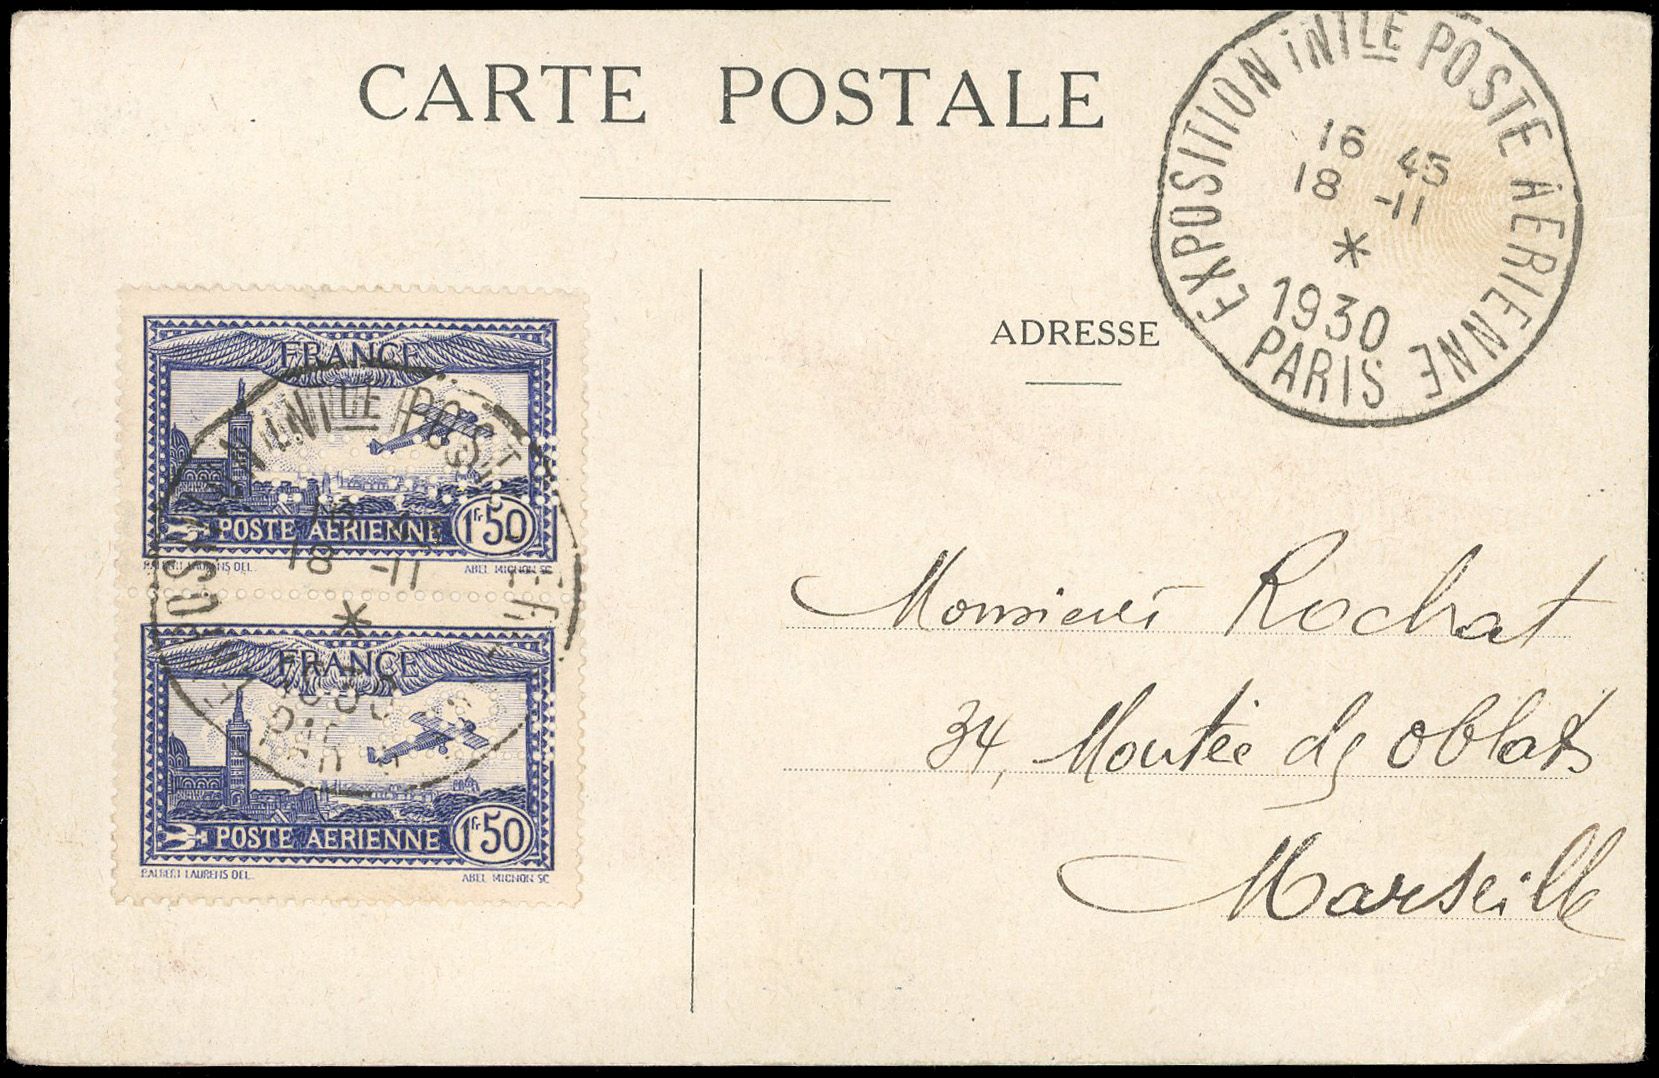 CARTE POSTALE
EXPOSITION INTLE POSTE AERIENNE
16 45
18 -11
*
1930
PARIS
ADRESSE
FRANCE
POSTE AÉRIENNE 1Fr50
ABEL MIGNON SC
INTLE POST
18 -11
*
FRANCE
POSTE AÉRIENNE 1Fr50
P. ALBERT LAURENS DEL.
ABEL MIGNON SC
Monsieur Rochat
34, Montée des Oblats
Marseille